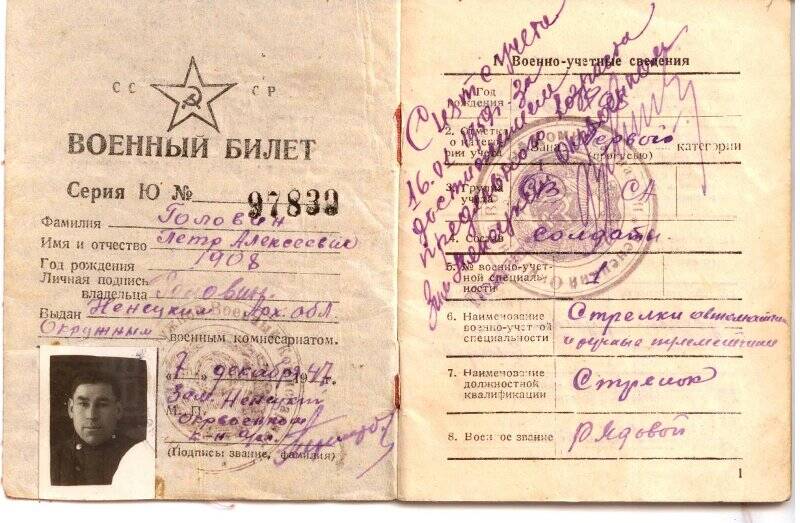 СС СР
ВОЕННЫЙ БИЛЕТ
Серия Ю № 97839
Фамилия Головин
Имя и отчество Петр Алексеевич
Год рождения 1908
Личная подпись
владельца Головин
Выдан Ненецким Арх. обл.
Окружным военным комиссариатом.
„7“ декабря 1947 г.
Зам. Ненецкий
М. П. Окрвоенком
к-н а/с
(Подпись звание, фамилия)
I. Военно-учетные сведения
1. Год
рождения 1908
2. Отметка
о категории учета Запа первого категории
(прописью)
3. Группа
учета СА
4. Состав солдаты
5. № военно-учет-
ной специаль-
ности 1
6. Наименование
военно-учетной
специальности
Стрелки автоматчики
и ручные пулеметчики
7. Наименование
должностной
квалификации
Стрелок
8. Военное звание рядовой
1
Снят с учета
16.
за
достижением
предельного возраста
Ненецкий Окрвоенком